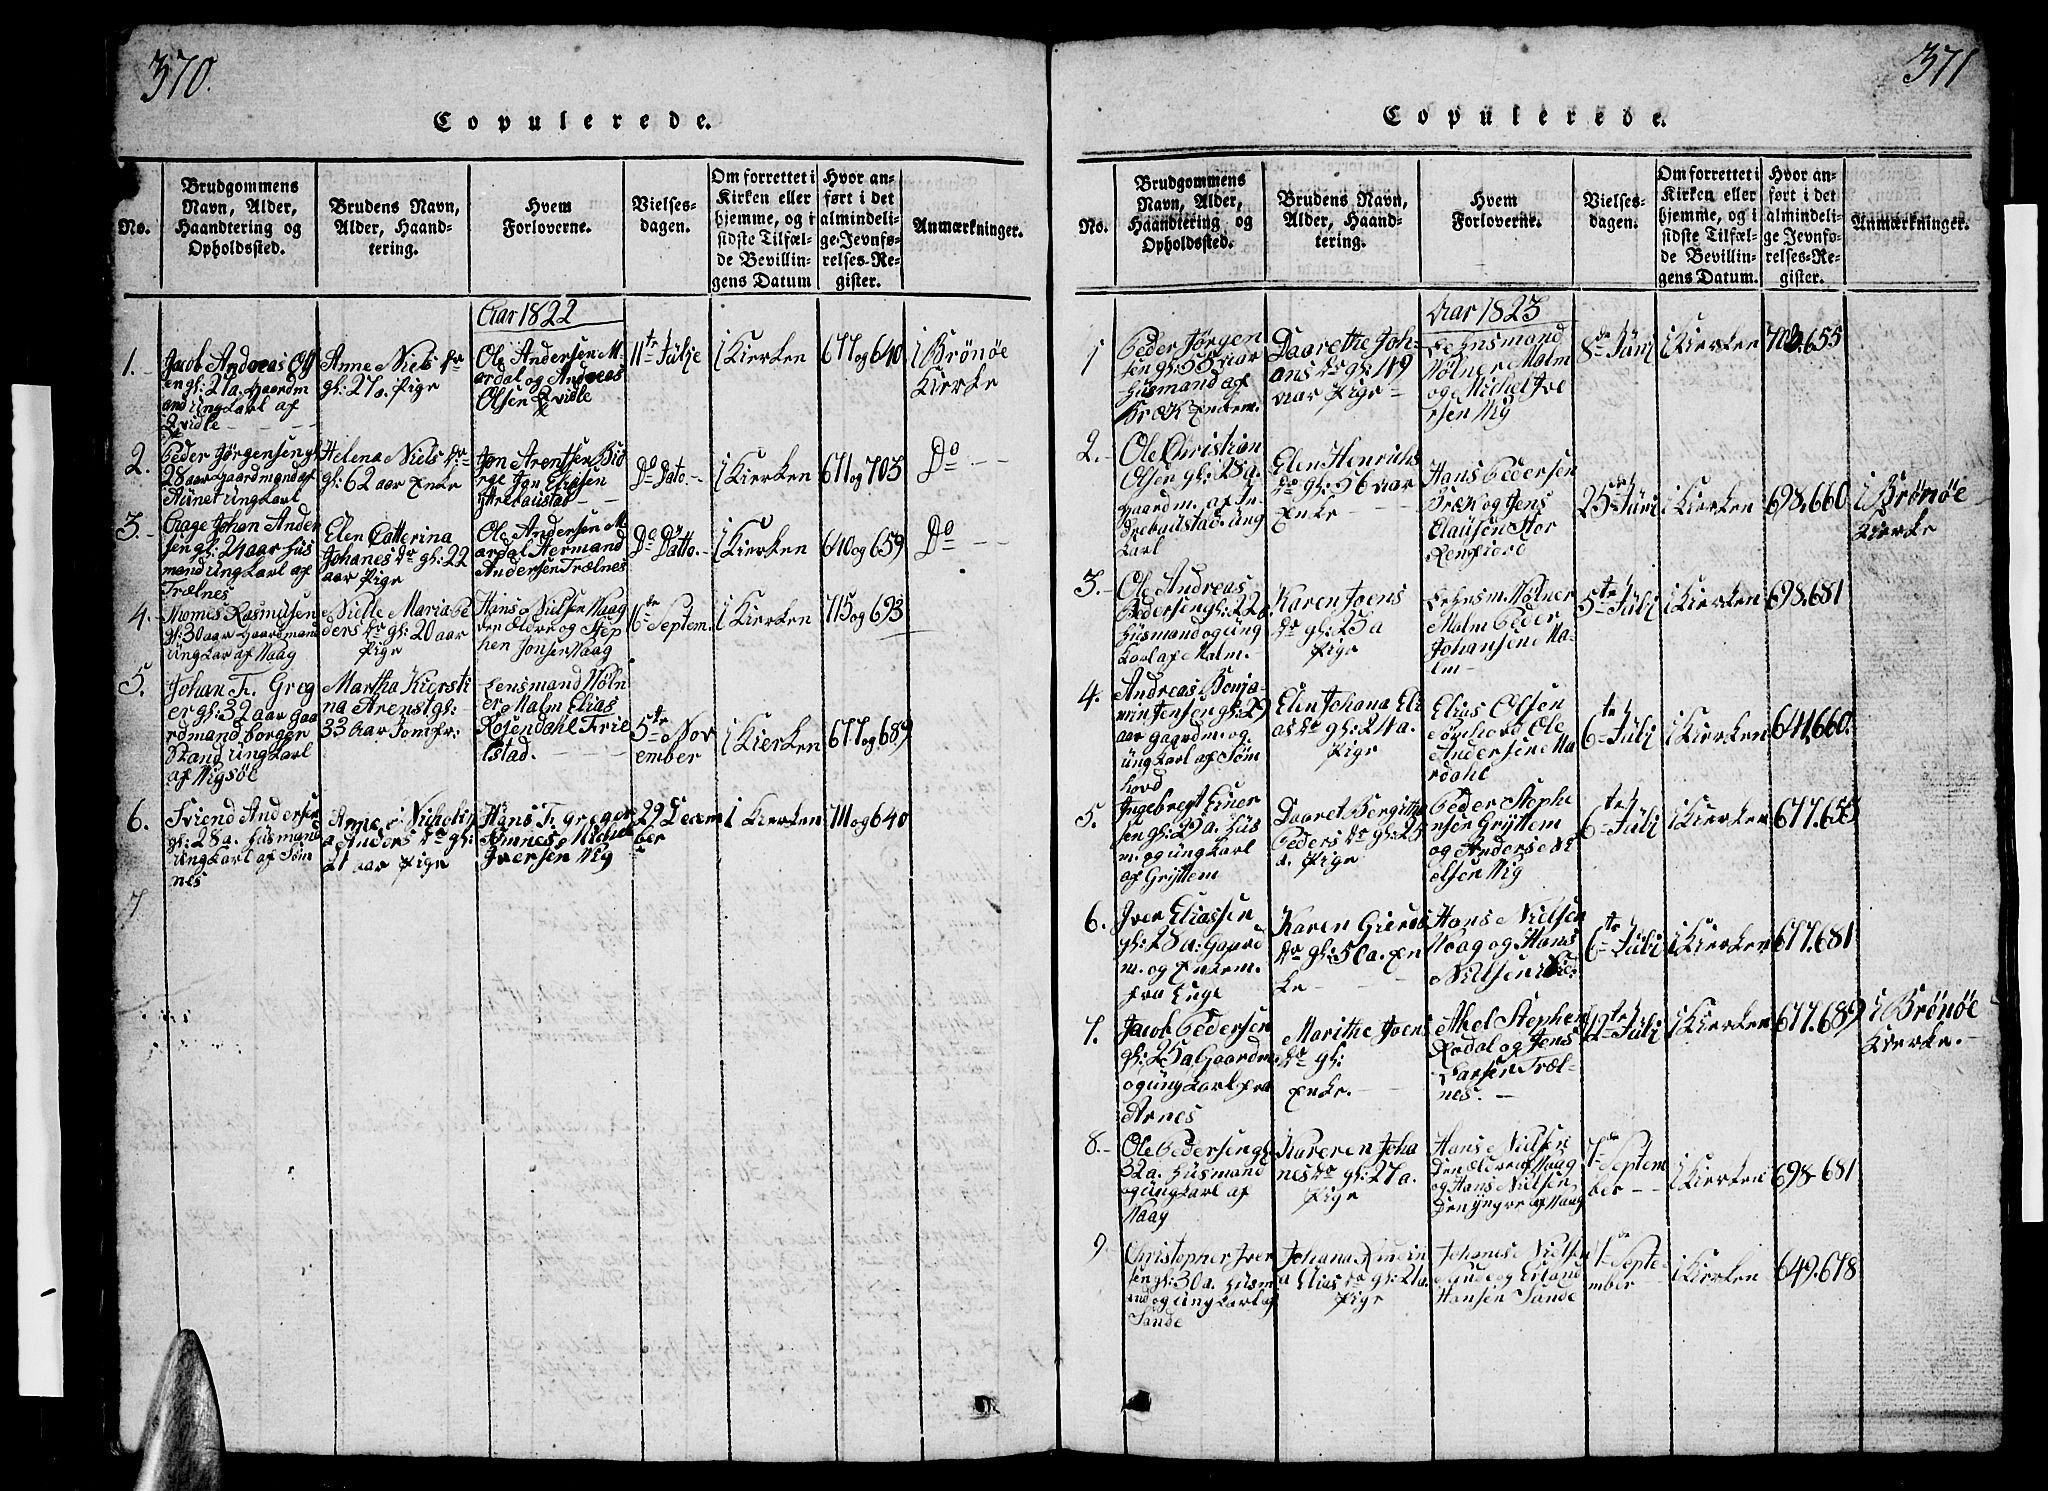 370.
Copulerede.
No.
Brudgommens
Navn, Alder,
Haandtering og
Opholdssted.
Brudens Navn,
Alder, Haand-
tering.
Hvem
Forloverne.
Vielses-
dagen.
Om forrettet i
Kirken eller
hjemme, og i
sidste Tilfæl-
de Bevillin-
gens Datum
Hvor an-
ført i det
almindeli-
ge Jevnfø-
relses-Re-
gister.
Anmærkninger.
Aar 1822
1.
Jacob Andreas Ols
en gl: 27 a. Gaardm
and ungkarl af
Qvidle
Anne Niels Dr
gl: 27 a. Pige
Ole Andersen M-
ardal og Andreas
Olsen Qvidle
11te Julje
i Kierken
677 og 640
i Brönöe
Kierke
2.
Peder Jörgensen gl
28 aar gaardmand af
ungkarl
Helena Niels Dr
gl: 62 aar Enke
Jon Arentsen Bio
rge Jon Elisen
Do Dato.
i Kierken
671 og 703
Do
3.
Aage Johan Ander
sen gl: 24 aar hus
mand ungkarl af
Trælnes
Elen Catterina
Johanes Dr gl: 22
aar Pige
Ole Andersen M-
ardal Hermand
Andersen Trælnes
Do Datto.
i Kierken
640 og 659
Do
4.
Thomes Rasmusen
gl: 30 aar Gaardman
ungkar af Vaag
Nille Maria Pe
ders Dr gl: 20 aar
Pige
Hans Nielsen Vaag
den Ældre og Step
hen Jonsen Vaag
6te Septem.
i Kierken
715 og 693
5.
Johan Fr. Greg
er gl: 32 aar Gaa
rdmand borger
Stand ungkarl
af Vigsöe
Martha Kiersti
na Arenst gl:
33 aar Jomfr.
Lensmand Röln
er Malm Elias
Rosendahl Trie
lstad.
5te Nov
ember
i Kierken
677 og 689
6.
Friend Andersen
gl: 28 a. husmand
ungkarl af Söm
nes
Anne Nicholin
a Anders Dr gl:
21 aar Pige
Hans Fr. greger
Michel
Iversen Vig
29 Decem
ber
i Kierken
711 og 640
7
371
Copulerede.
No.
Brudgommens
Navn, Alder,
Haandtering og
Opholdssted.
Brudens Navn,
Alder, Haand-
tering.
Hvem
Forloverne.
Vielses-
dagen.
Om forrettet i
Kirken eller
hjemme, og i
sidste Tilfæl-
de Bevillin-
gens Datum.
Hvor an-
ført i det
almindeli-
ge Jevnfø-
relses-Re-
gister.
Anmærkninger.
Aar 1823
1
Peder Jörgen
sen gl: 55 aar
Husmand af
Bræk Enkem.
Daarethe Joh-
ans Dr gl: 49
aar Pige
Lehnsmand
Mölner Malm
og Michel Ive
rsen Vig
8de Juni
i Kierken
703.655
2.
Ole Christian
Olsen gl: 28 a.
gaardm. af In
drebaustad. ung
karl
Elen Henrichs
Dr gl: 56 aar
Enke
Hans Pedersen
Brek og Jens
Clausen Stor
Rensfiord
25de Juni
i Kierken
698.660
i Brönöe
Kierke
3.
Ole Andreas
Pedersen gl: 22 a.
Husmand og ung
karl af Malm.
Karen Joens
Dr gl: 23 a
Pige
Lehnsm. Mölner
Malm Peder
Johansen Ma-
lm
5te Juli
i Kierken
698.681
4.
Andreas Benja-
min Jensen gl: 29
aar gaardm. og
ungkarl af Söm
hovd
Elen Johana Eli
as Dr gl: 24 a.
Pige
Elias Olsen
Sömhovd Ole
Andersen Ma
rdahl
6te Juli
i Kierken
641.660.
5.
Ingebregt Einer
sen gl: 29 a. hus
m. og ungkarl
af Gryttem
Daaret Bergitha
Peders Dr gl: 25
a. Pige
Peder Stephe
nsen Gryttem
og Anders Ni
elsen Vig
6te Juli
i Kierken
677.655
6.
Iver Eliassen
gl: 28 a: gaard
m. og Enkem.
fra
Karen Giertr
Dr gl: 50 a. En
ke
Hans Nielsen
Vaag og Hans
Nielsen
6te Juli
i Kierken
677.681
7.
Jacob Pedersen
gl: 25 a Gaardm
og ungkarl fra
Arnes
Marithe Joens
Dr gl:
Enke.
Abel Stephen
Rodal og Jens
Larsen Træl-
nes.
12te Juli
i Kierken
677.689
i Brönöe
Kierke.
8.
Ole Pedersen gl
32 a. Husmand
og ungkarl af
Vaag
Kareren Joha
nes Dr gl: 27 a.
Pige
Hans Nielsen
den Ældre af Vaag
og Hans Nielsen
den yngre af Vaag
7de Septem
ber
i Kierken
698-681
9
Christopher Iver
sen gl: 30 a. husm
and og ungkarl af
Sande
Johana
a Elias Dr gl: 21 a.
Pige
Johanes Nielsen
og Erland
Hansen Sande
7de Septe
mber
i Kierken
649.678